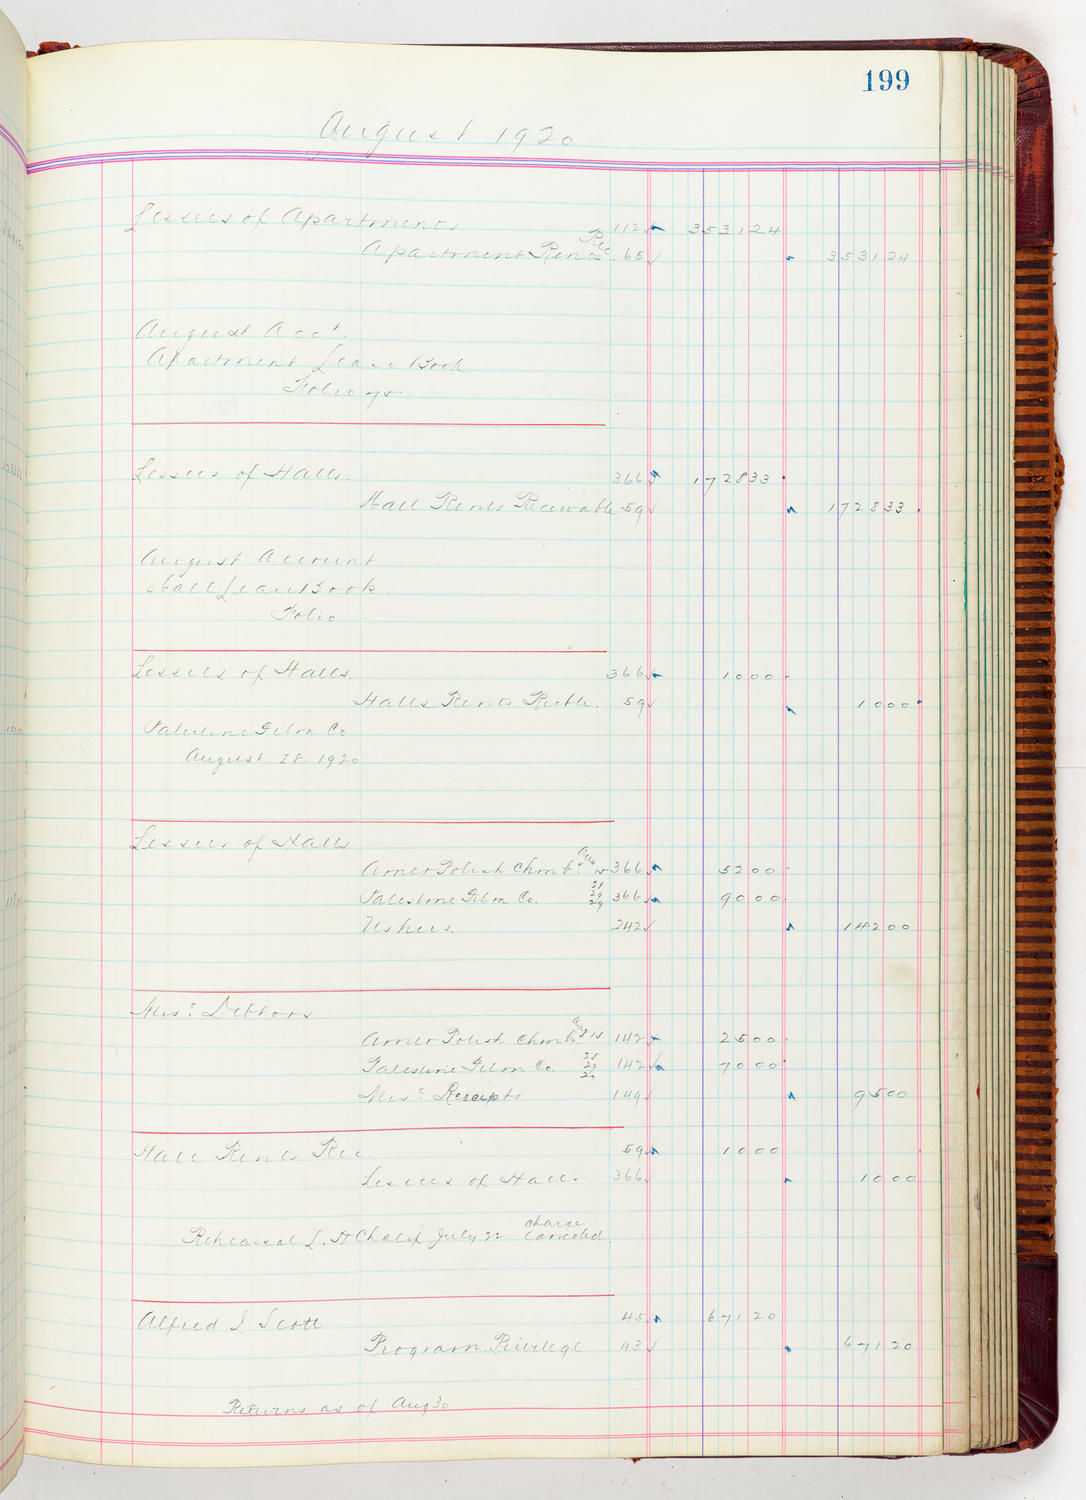 199
August 1920
Lessees of Apartments 112 353124
Apartment Rents Rec 65 353124
August Acct.
Apartment Lease Book
Folio 75
Lessees of Halls. 366 172833
Hall Rents Receivable 59 172833
August Account
Hall Lease Book
Folio
Lessees of Halls. 366 1000
Halls Rents Recble. 59 1000
Palestine Film Co
August 28. 1920
Lessees of Halls
Amer Polish Chmbr. Aug 366 5200
Palestine Film Co. 28 29 29 366 9000
Ushers. 242 14200
Misc Debtors
Amer Polish Chmbr. Aug 15 142 2500
Palestine Film Co. 28 29 29 142 7000
Misc Receipts 149 9500
Hall Rents Rec. 59 1000
Lessees of Halls 366 1000
Rehearsal L. H Chalif July 22 charge canceled.
Alfred J. Scott 45 67120
Program Privilege 43 67120
Returns as of Aug 30